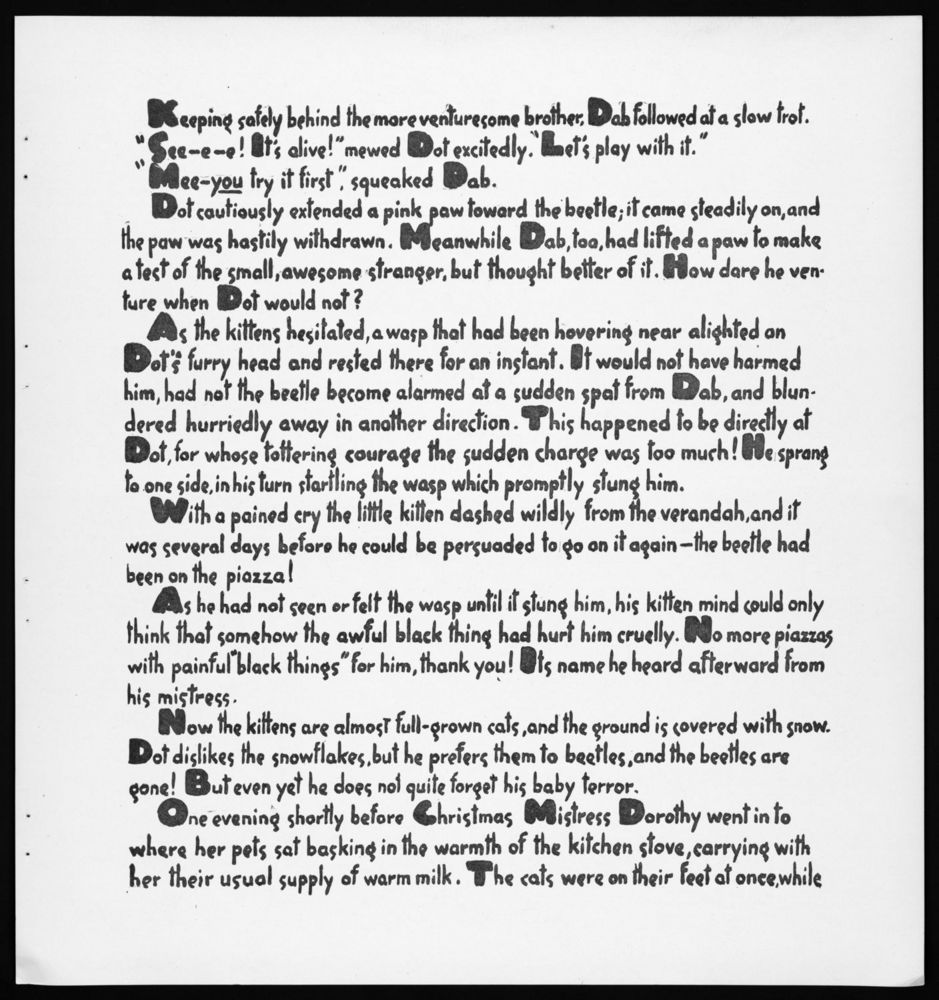 Keeping safely behind the more venturesome brother, Dab followed at a slow trot.
"See-e-e! It's alive!" mewed Dot excitedly. "Let's play with it."
"Mee-you try it first", squeaked Dab.
Dot cautiously extended a pink paw toward the beetle; it came steadily on, and
the paw was hastily withdrawn. Meanwhile Dab, too, had lifted a paw to make
a test of the small, awesome stranger, but thought better of it. How dare he ven-
ture when Dot would not?
As the kittens hesitated, a wasp that had been hovering near alighted on
Dot's furry head and rested there for an instant. It would not have harmed
him, had not the beetle become alarmed at a sudden spat from Dab, and blun-
dered hurriedly away in another direction. This happened to be directly at
Dot, for whose tottering courage the sudden charge was too much! He sprang
to one side, in his turn startling the wasp which promptly stung him.
With a pained cry the little kitten dashed wildly from the verandah, and it
was several days before he could be persuaded to go on it again—the beetle had
been on the piazza!
As he had not seen or felt the wasp until it stung him, his kitten mind could only
think that somehow the awful black thing had hurt him cruelly. No more piazzas
with painful "black things" for him, thank you! Its name he heard afterward from
his mistress.
Now the kittens are almost full-grown cats, and the ground is covered with snow.
Dot dislikes the snowflakes, but he prefers them to beetles, and the beetles are
gone! But even yet he does not quite forget his baby terror.
One evening shortly before Christmas Mistress Dorothy went in to
where her pets sat basking in the warmth of the kitchen stove, carrying with
her their usual supply of warm milk. The cats were on their feet at once, while